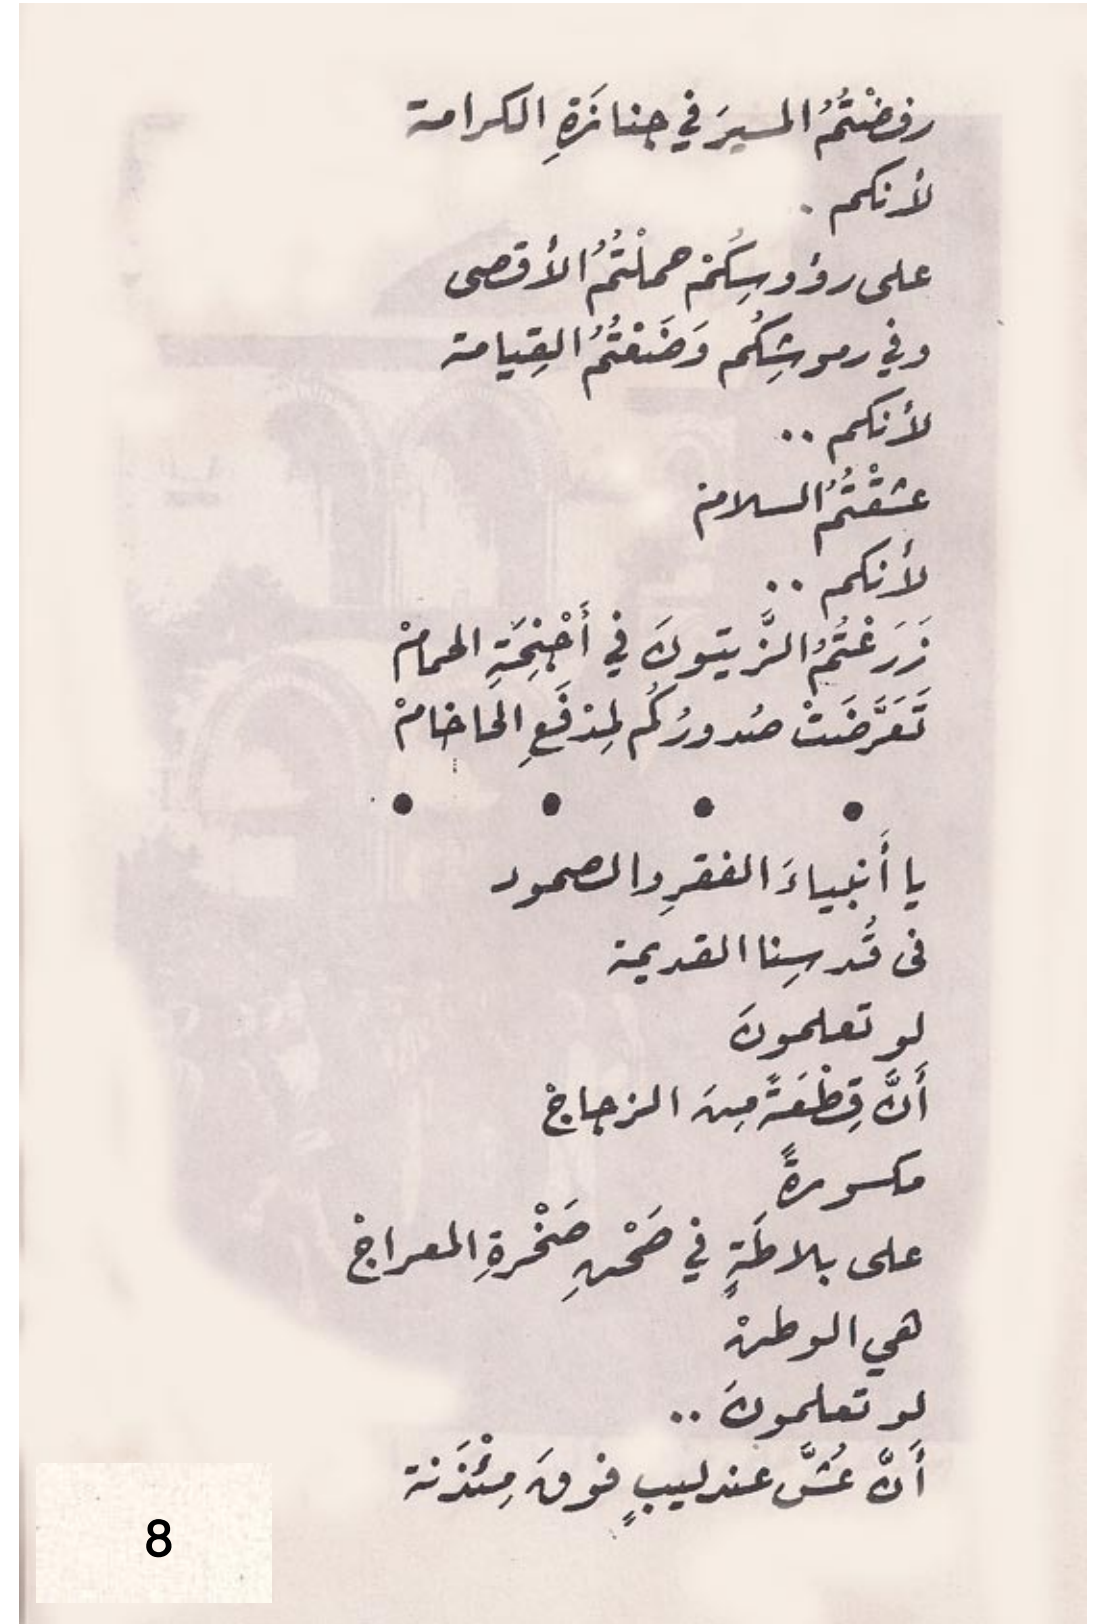 رفضْتُمُ المسيرَ في جنازَةِ الكرامة
لأنكم .
على رؤوسِكُمْ حملْتُمُ الأقصى
وفي رموشِكُم وَضَعْتُمُ القِيامة
لأنكم ..
عشقْتُمُ السلامْ
لأنكم ..
زَرَعْتُمُ الزَّيتونَ في أَجْنِحَةِ الحمامْ
تَعَرَّضَتْ صُدورُكُم لِمِدْفَعِ الحاخامْ
● ● ● ●
يا أَنبياءَ الفقرِ والصمود
فى قُدسِنا القديمة
لو تعلمونَ
أَنَّ قِطْعَةً مِنَ الزجاجْ
مكسورةً
على بلاطَةٍ في صَحْنِ صَخْرةِ المعراجْ
هي الوطنْ
لو تعلمونَ ..
أَنَّ عُشَّ عندليبٍ فوقَ مِئْذَنة
8